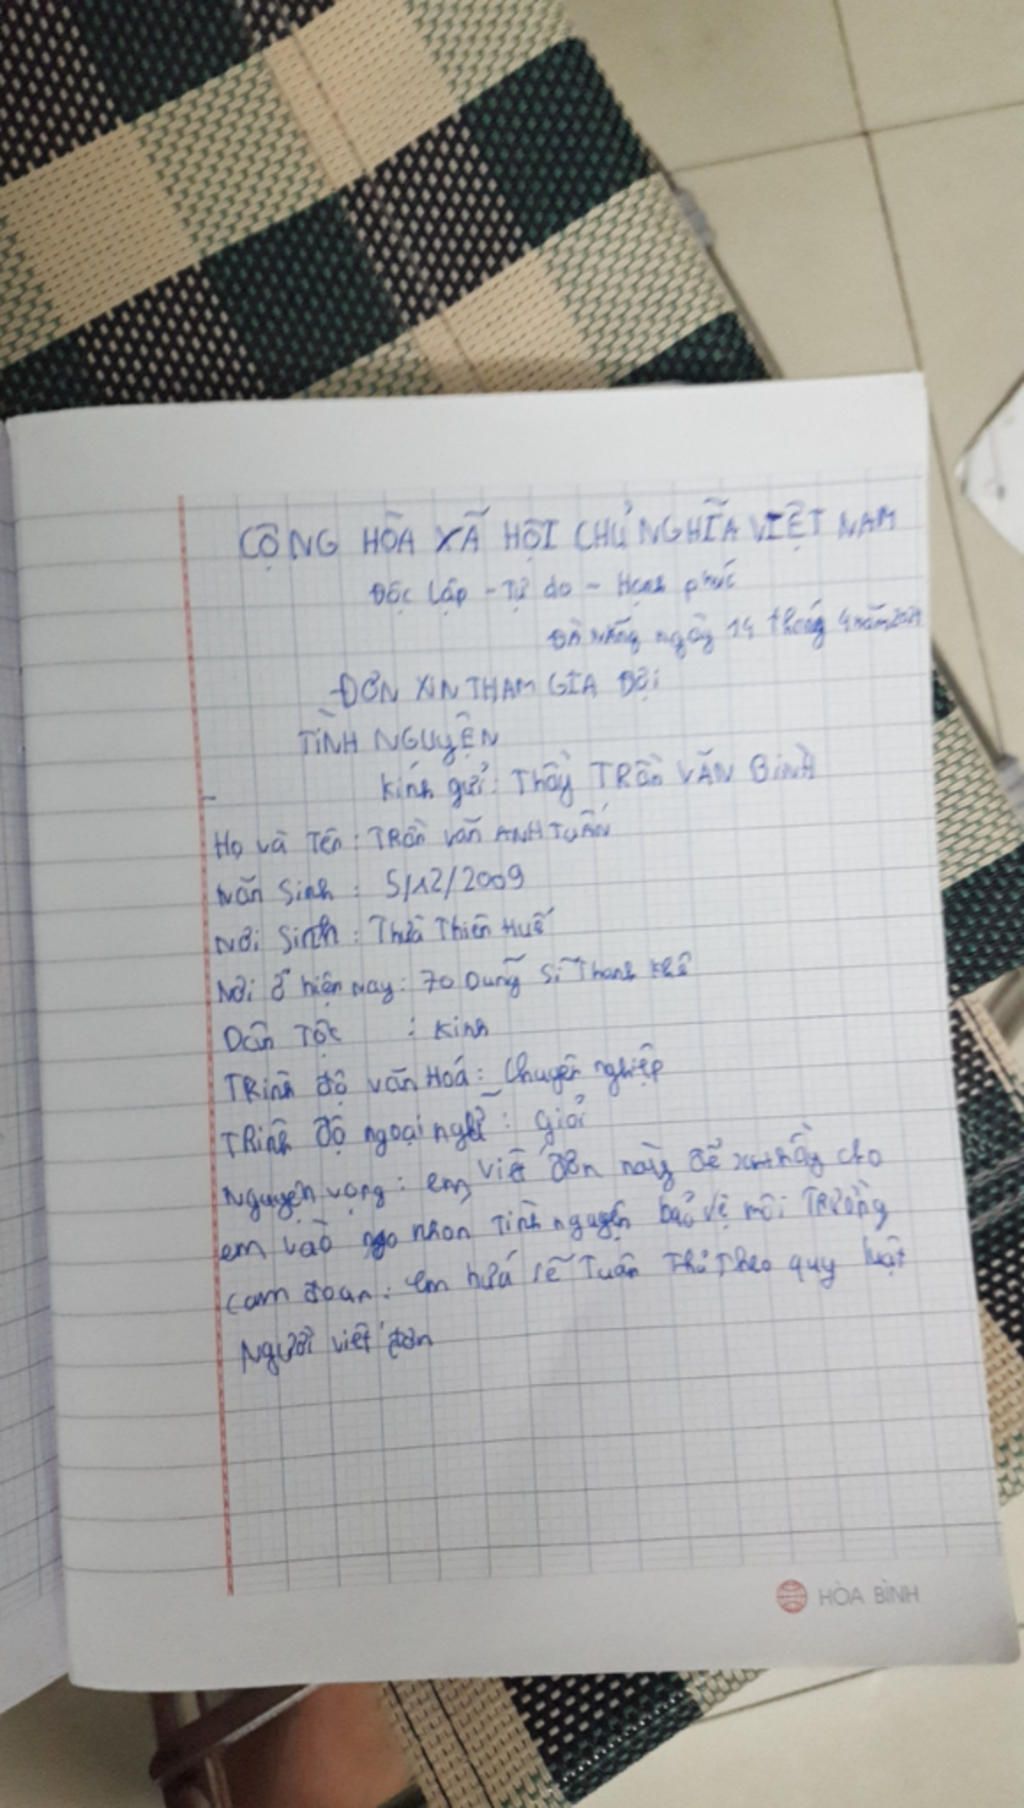 CỘNG HÒA XÃ HỘI CHỦ NGHĨA VIỆT NAM
Độc lập - Tự do - Hạnh phúc
Đà Nẵng ngày 14 tháng 4 năm
ĐƠN XIN THAM GIA ĐỘi
TÌNH NGUYỆN
Kính gửi: Thầy TRẦN VĂN BìNH
Họ và Tên: TRần Văn ANH TUẤN
Năm Sinh: 5/12/2009
Nơi Sinh: Thừa Thiên Huế
Nơi ở hiện nay: 70 Dũng Sĩ Thanh Khê
Dân Tộc : Kinh
TRình độ văn Hoá: Chuyên nghiệp
TRình Độ ngoại ngữ: giỏi
Nguyện vọng: em viết đơn này để xin thầy cho
em vào nhón Tình nguyện bảo vệ môi TRường
Cam đoan: em hứa sẽ Tuân Thủ Theo quy luật
Người viết đơn
HÒA BÌNH